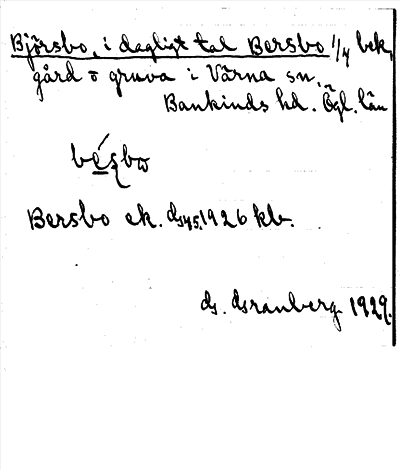 Björsbo, i dagligt tal Bersbo 1/4 bek.
gård o gruva i Värna sn,
Bankinds hd. Ögl. län
Bersbo ek. 1926 kb.
Granberg 1929.